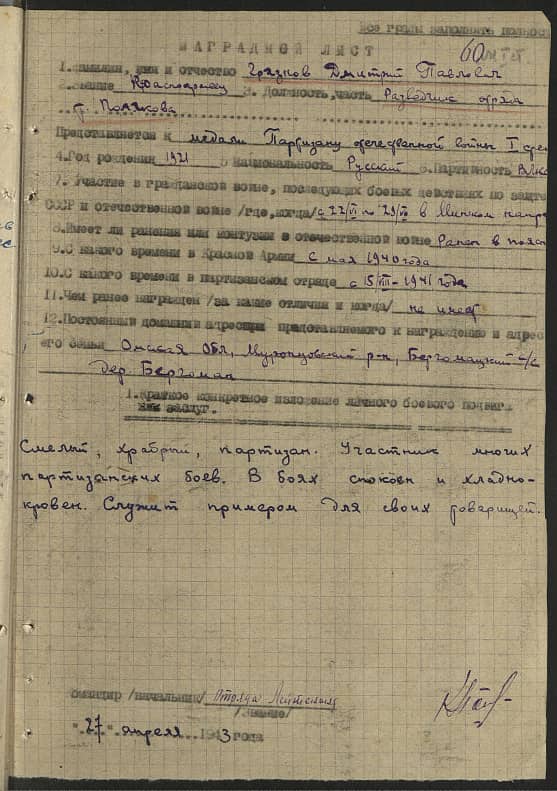 Все графы заполнять полность
60
НАГРАДНОЙ ЛИСТ
1. Фамилия, имя и отчество Грязнов Дмитрий Павлович
2. Звание Красноармеец 3. Должность, часть Разведчик отряда
т. Полякова
Представляется к медали Партизану отечественной войны I степ
4. Год рождения 1921 5 Национальность Русский 6. Партийность ВЛКС
7. Участие в гражданской войне, последующих боевых действиях по защите
СССР и отечественной войне /где, когда/ с 22/VI по 23/VII в Минском напр
8. Имеет ли ранения или контузии в отечественной войне Ранен в пояс
9. С какого времени в Красной Армии с мая 1940 года
10. С какого времени в партизанском отряде с 15/VIII-1941 года
11. Чем ранее награжден /за какие отличия и когда/ не имеет
12. Постоянный домашний адрес представляемого к награждению и адрес
его семьи Омская Обл, Муромцовский р-н, Бергомацкий с/с
дер. Бергомак
1. Краткое конкретное изложение личного боевого подвига
или заслуг.
Смелый, храбрый, партизан. Участник многих
партизанских боев. В боях спокоен и хладно-
кровен. Служит примером для своих товарищей.
Командир /начальник/ Отряда Лейтенант
/Звание/
"27" апреля 1943 года